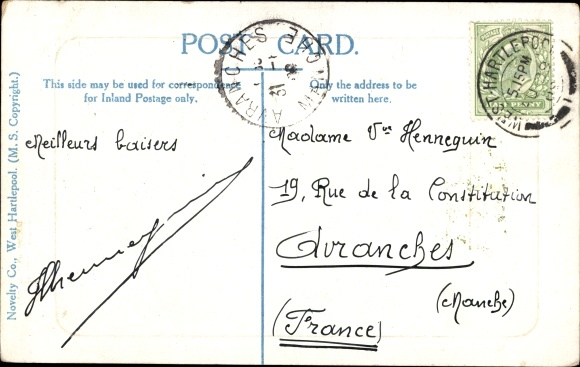 POST CARD.
This side may be used for correspondence
for Inland Postage only.
Only the address to be
written here.
AVRANCHES
MANCHE
31
WEST HARTLEPOOL
PENNY
Meilleurs baisers
Madame Vve Hennequin
19, Rue de la Constitution
Avranches
(Manche)
(France)
Novelty Co., West Hartlepool. (M. S. Copyright.)